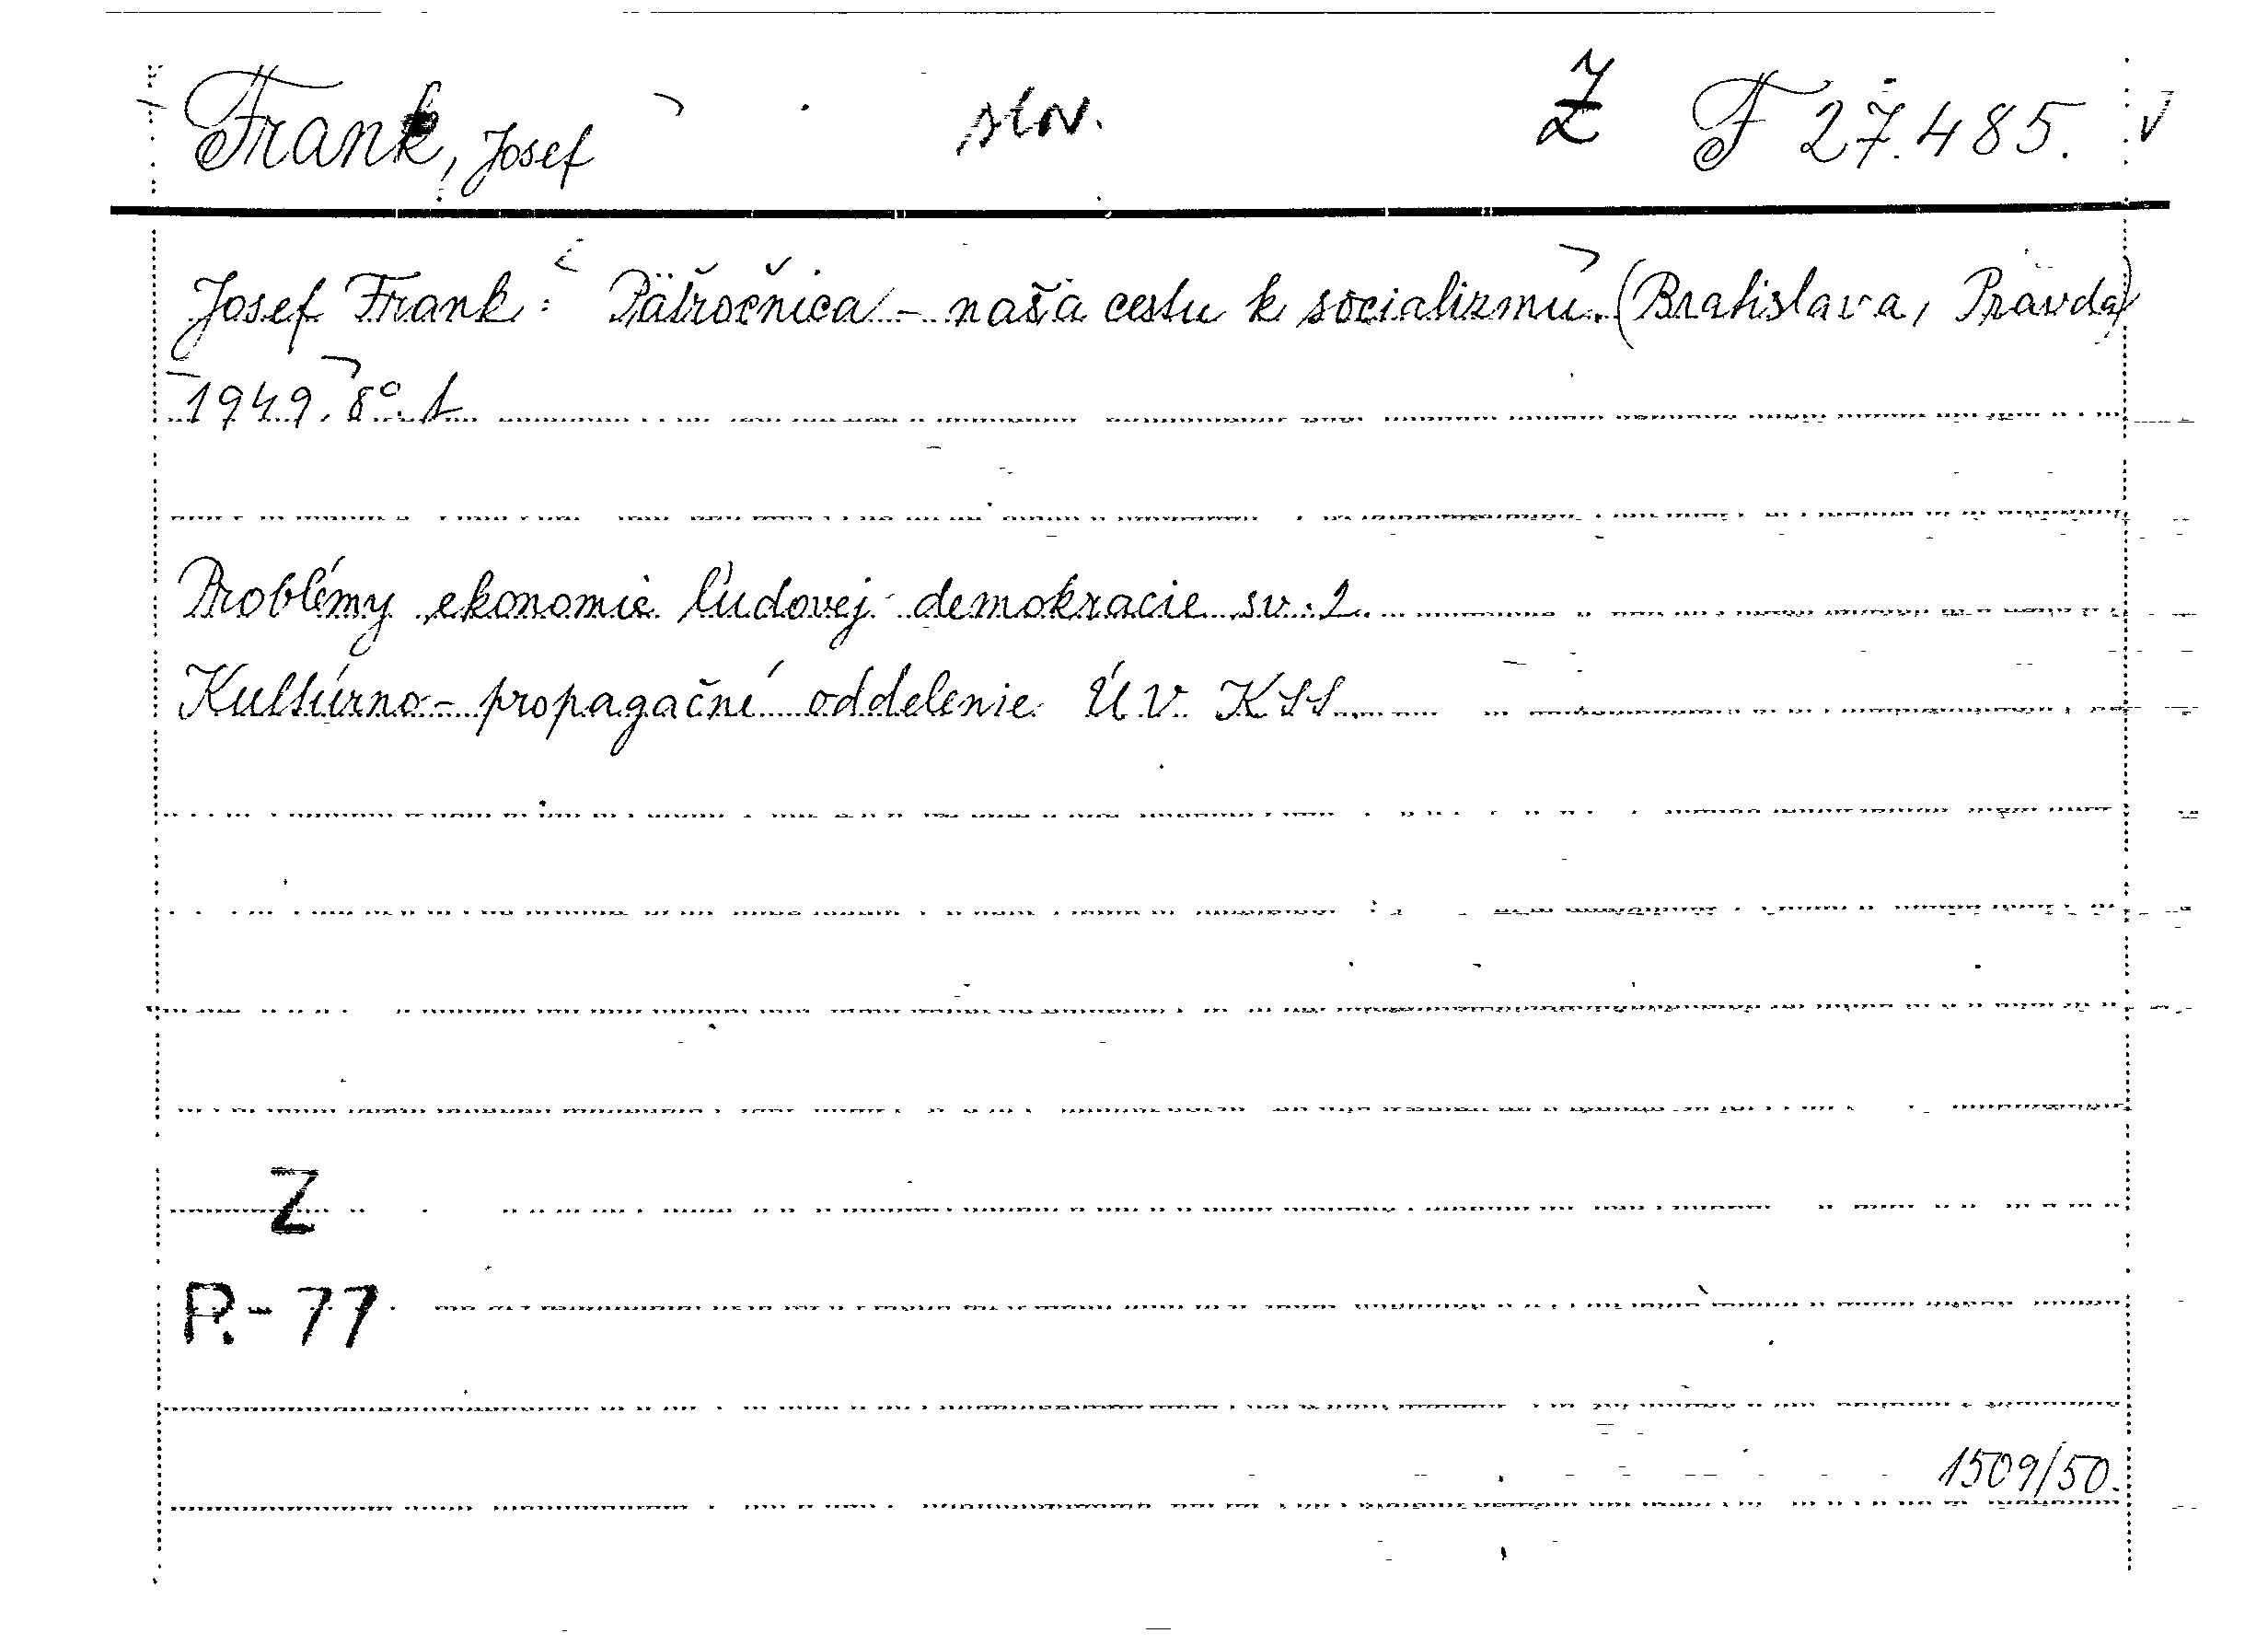 Frank, Josef slov. Ž F 27.485. V
Josef Frank: Päťročnica - naša cestu k socializmu. (Bratislava, Pravda)
1949. 8°.
Problémy ekonomie ľudovej demokracie sv. 2.
Kultúrno-propagačné oddelenie ÚV KSS.
Z
P.-77
1509/50.